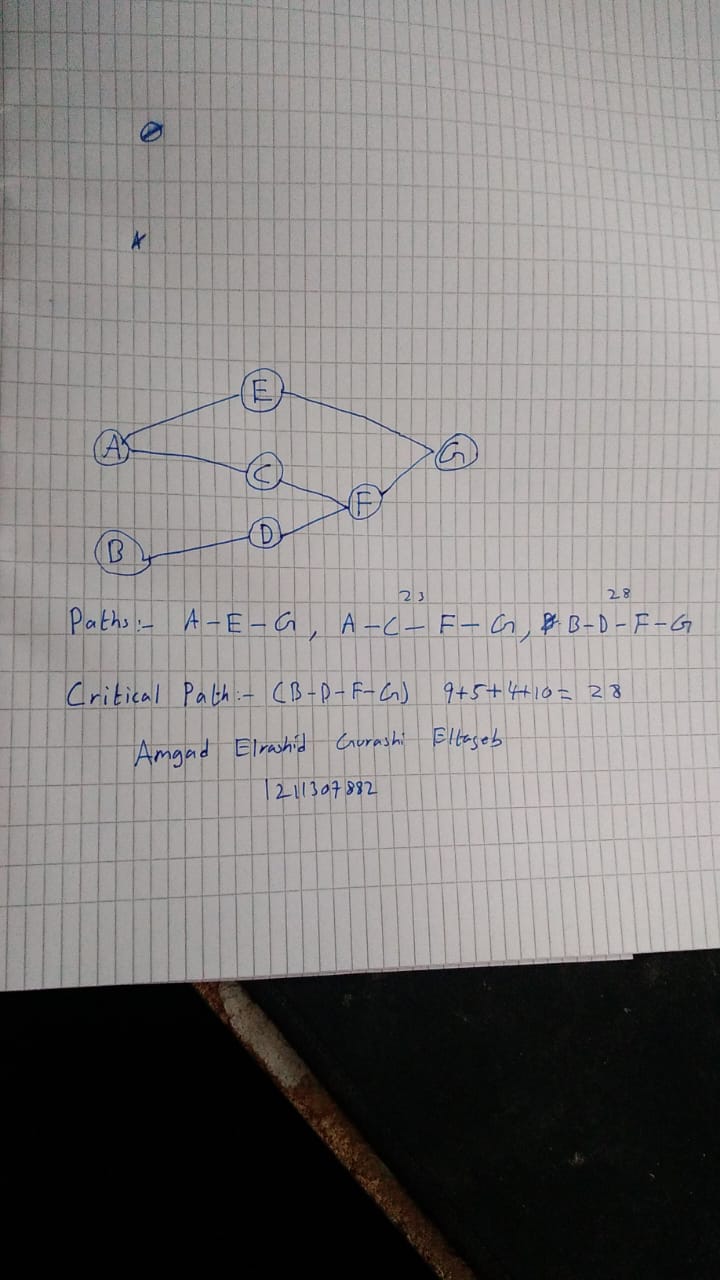 E
A
C
G
F
D
B
23 28
Paths:- A-E-G, A-C-F-G, B-D-F-G
Critical Path:- (B-D-F-G) 9+5+4+10= 28
Amgad Elrashid Gurashi Eltayeb
1211307882